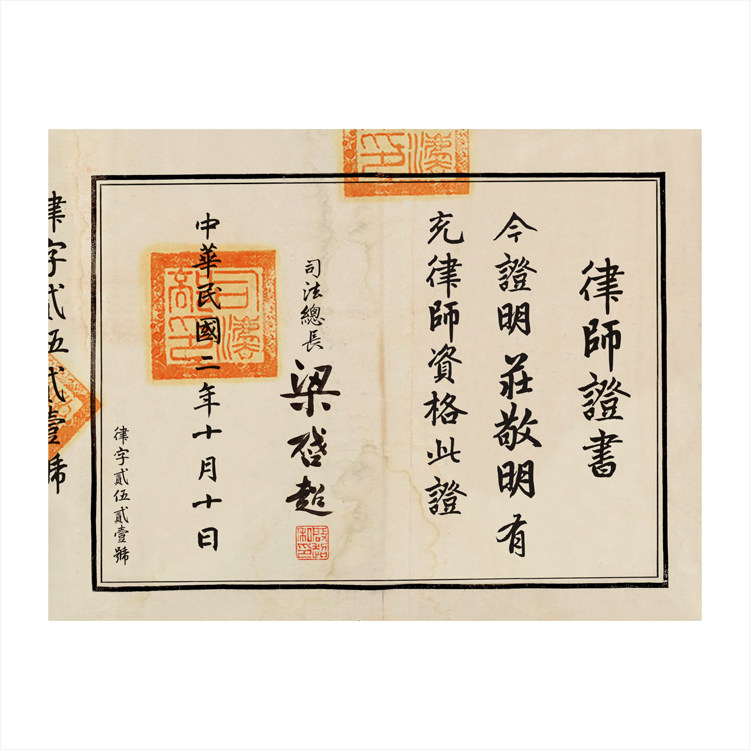 律師證書
今證明莊敬明有
充律師資格此證
司法總長
梁啓超
中華民國二年十月十日
律字貳伍貳壹號
律字貳伍貳壹號